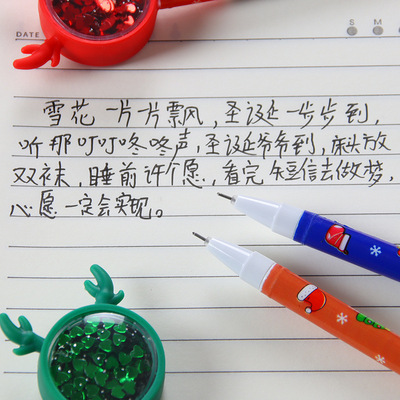 DATE
S M
雪花一片片飘风,圣诞一步步到,
听那叮叮咚咚声,圣诞爷爷到,床头放
双袜,睡前许个愿,看完短信去做梦,
心愿一定会实现。